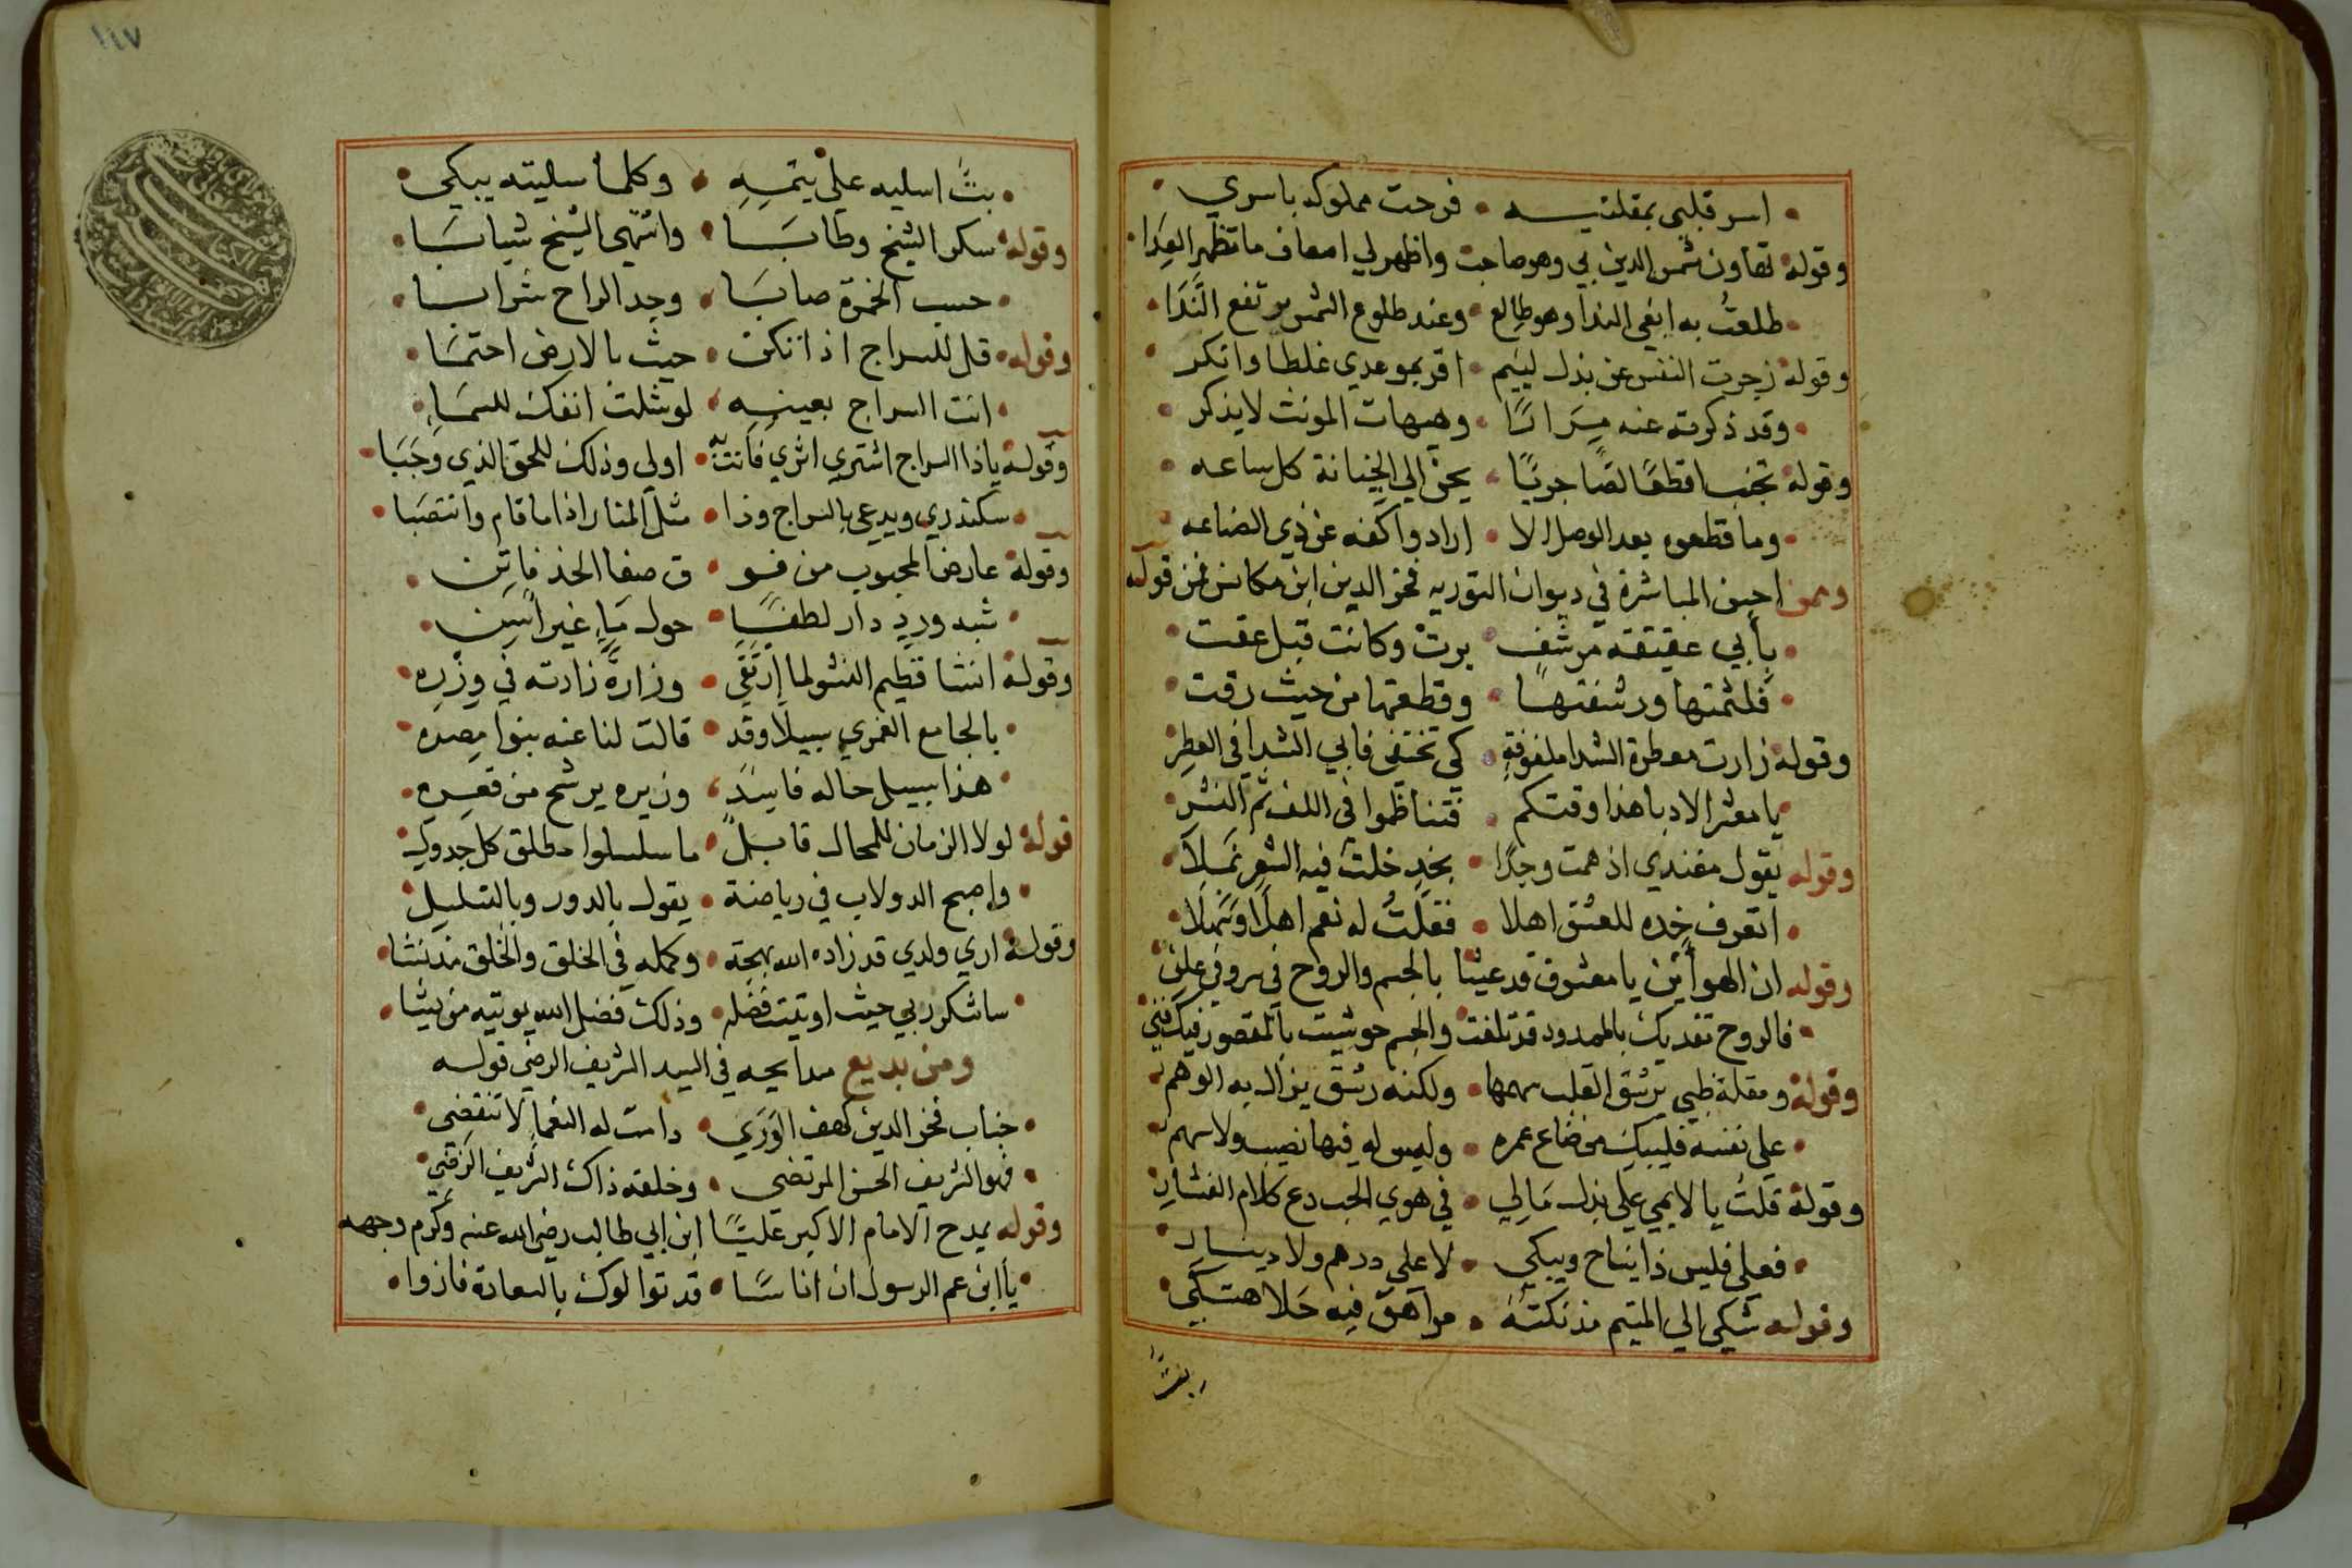 اسر قلبي بمقلتيه • فرحت مملوكه باسري
وقوله تهاون شمس الدين بي وهو صاحب واظهر لي اضعاف ما تظهر العدا
طلعت به ابغي الندا وهو طالع • وعند طلوع الشمس يرتفع الندا
وقوله زجرت النفس عن بذل لييم • اقر بموعدي غلطا وانكر
وقد ذكرته عنه مرارا • وهيهات المونث لا يذكر
وقوله تجنب اقطعا لصا جريا • يحن الي الخيانة كل ساعه
وما قطعوه بعد الوصل الا • ارادوا كفه عن ذي الضناعه
وممن احسن المباشرة في ديوان التوريه فخر الدين ابن مكانس فمن قوله
بابي عقيقة مرشف • برت وكانت قبل عقت
فلثمتها ورشفتها • وقطعتها من حيث رقت
وقوله زارت معطرة الشدا ملفوفة • كي تختفي فابي الشدا في العطر
يا معشر الادبا هذا وقتكم • فتناظموا في اللف ثم النشر
وقوله يقول مفندي اذ همت وجدا • بخد خلت فيه الشعر نملا
اتعرف خده للعشق اهلا • فقلت له نعم اهلا وسهلا
وقوله ان الهواين يا معشوق قد عبثا بالجسم والروح في سر وفي علن
فالروح تفديك بالممدود قد تلفت والجسم حوشيت بالمقصور فيك فني
وقوله ومقلة ظبي ترشق القلب سهمها • ولكنه رشق يزال به الوهم
علي نفسه فليبك من ضاع عمره • وليس له فيها نصيب ولا سهم
وقوله قلت يا لايمي علي بذل مالي • في هوي الحب دع كلام الفشار
فعلي فليس ذا يناح ويبكي • لا علي درهم ولا دينار
وقوله شكي الي المتيم مذ نكته • مراهق فيه حلا هتكي
بت اسليه علي يتمه • وكلما سليته يبكي
وقوله سكر الشيخ وطابا • واشتهي الشيخ شبابا
حسب الخمرة صابا • وجد الراح شرابا
وقوله • قل للسراج اذا تكبر • حيث بالارض احتما
انت السراج بعينه • لو شلت انفك للسما
وقوله يا ذا السراج اشتري ايري فانت به • اولي وذلك للحق الذي وجبا
سكندري ويدعي بالسراج وذا • مثل المنار اذا ما قام وانتصبا
وقوله عارض المحبوب من فو • ق صفا الخد فاتن
شبه ورد دار لطفا • حول ماء غير اسن
وقوله انشا فطيم النشو لما ارتقي • وزارة زادته في وزره
بالجامع الغمري سبيلا وقد • قالت لنا عنه بنوا مصره
هذا سبيل حاله فاسد • وزيره يرشح من قعره
قوله لولا الزمان للمحال قابل • ما سلسلوا مطلق كل جدول
واصبح الدولاب في رياضة • يقول بالدور وبالتسلسل
وقوله اري ولدي قد زاده الله بهجة • وكمله في الخلق والخلق مذ نشا
ساشكر ربي حيث اوتيت فضله • وذلك فضل الله يوتيه من يشا
ومن بديع مدايحه في السيد الشريف الرضي قوله
جناب فخر الدين كهف الوري • دامت له النعما لا تنقضي
فهو الشريف الحسن المرتضي • وخلقه ذاك الشريف الرضي
وقوله يمدح الامام الاكبر عليا ابن ابي طالب رضي الله عنه وكرم وجهه
يا ابن عم الرسول ان اناسا • قد توالوك بالسعادة فازوا
١١٧